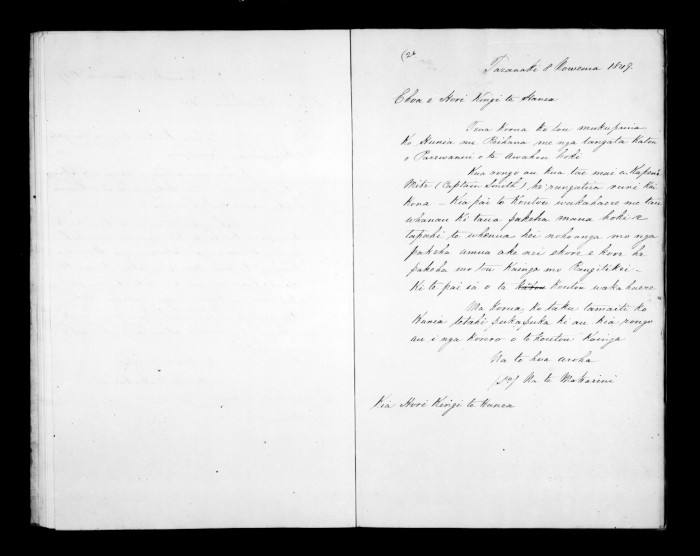 (26
Taranaki 8 Nowema 1849.
E hoa e Hori Kingi te Hanea
Tena korua ko tou mukupuna
Ko Hunia me Reihana me nga tangata katoa
o Parewanui o te Awahou hoki
Kua rongo au kua tae mai a Kapene
Mite (Captain Smith) he rangatira ruri kei
kona – Kia pai te koutou wakahaere me tau
whanau ki taua pakeha mana hoki e
tapahi te whenua hei nohoanga mo nga
pakeha amua ake nei ekore e kore he
pakeha mo tou Kainga mo Rangitikei –
Ki te pai sa o ta koutou wakahaere
Ma korua ko taku tamaiti ko
Hunia pukapuka ki au kia rongo
au i nga korero o to koutou Kainga
Na to hoa aroha
Na te Makarini
Kia Hori Kingi te Hanea